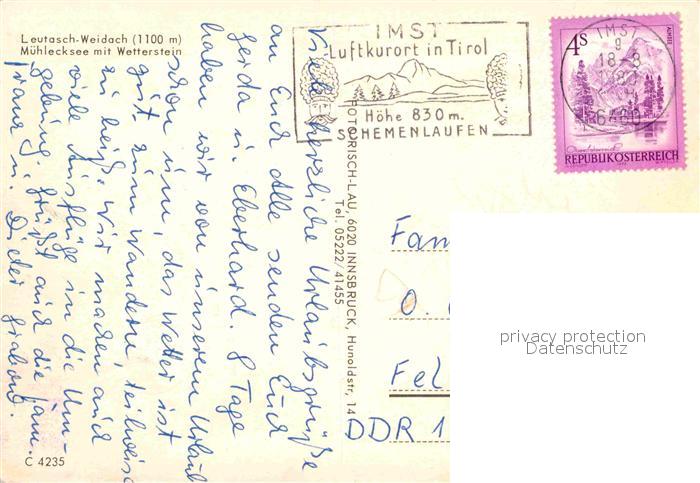 Leutasch-Weidach (1100 m)
Mühlecksee mit Wetterstein
IMST
Luftkurort in Tirol
Höhe 830 m.
SCHEMENLAUFEN
IMST
9
18-8
6460
4S
REPUBLIK ÖSTERREICH
Viele herzliche Urlaubsgrüße
an Euch Alle senden Euch
Gerda u. Eberhard. 8 Tage
haben wir von unserem Urlaub
schon um, das Wetter ist
gut zum Wandern, teilweise
zu heiß. Wir machen auch
viele Ausflüge in die Um-
gebung. Grüßt auch die Fam.
Franz u. Dieter
FOTO RISCH-LAU, 6020 INNSBRUCK, Hunoldstr. 14
Tel. 05222/41455
Fam
O.
Fel
DDR 1
privacy protection
Datenschutz
C 4235